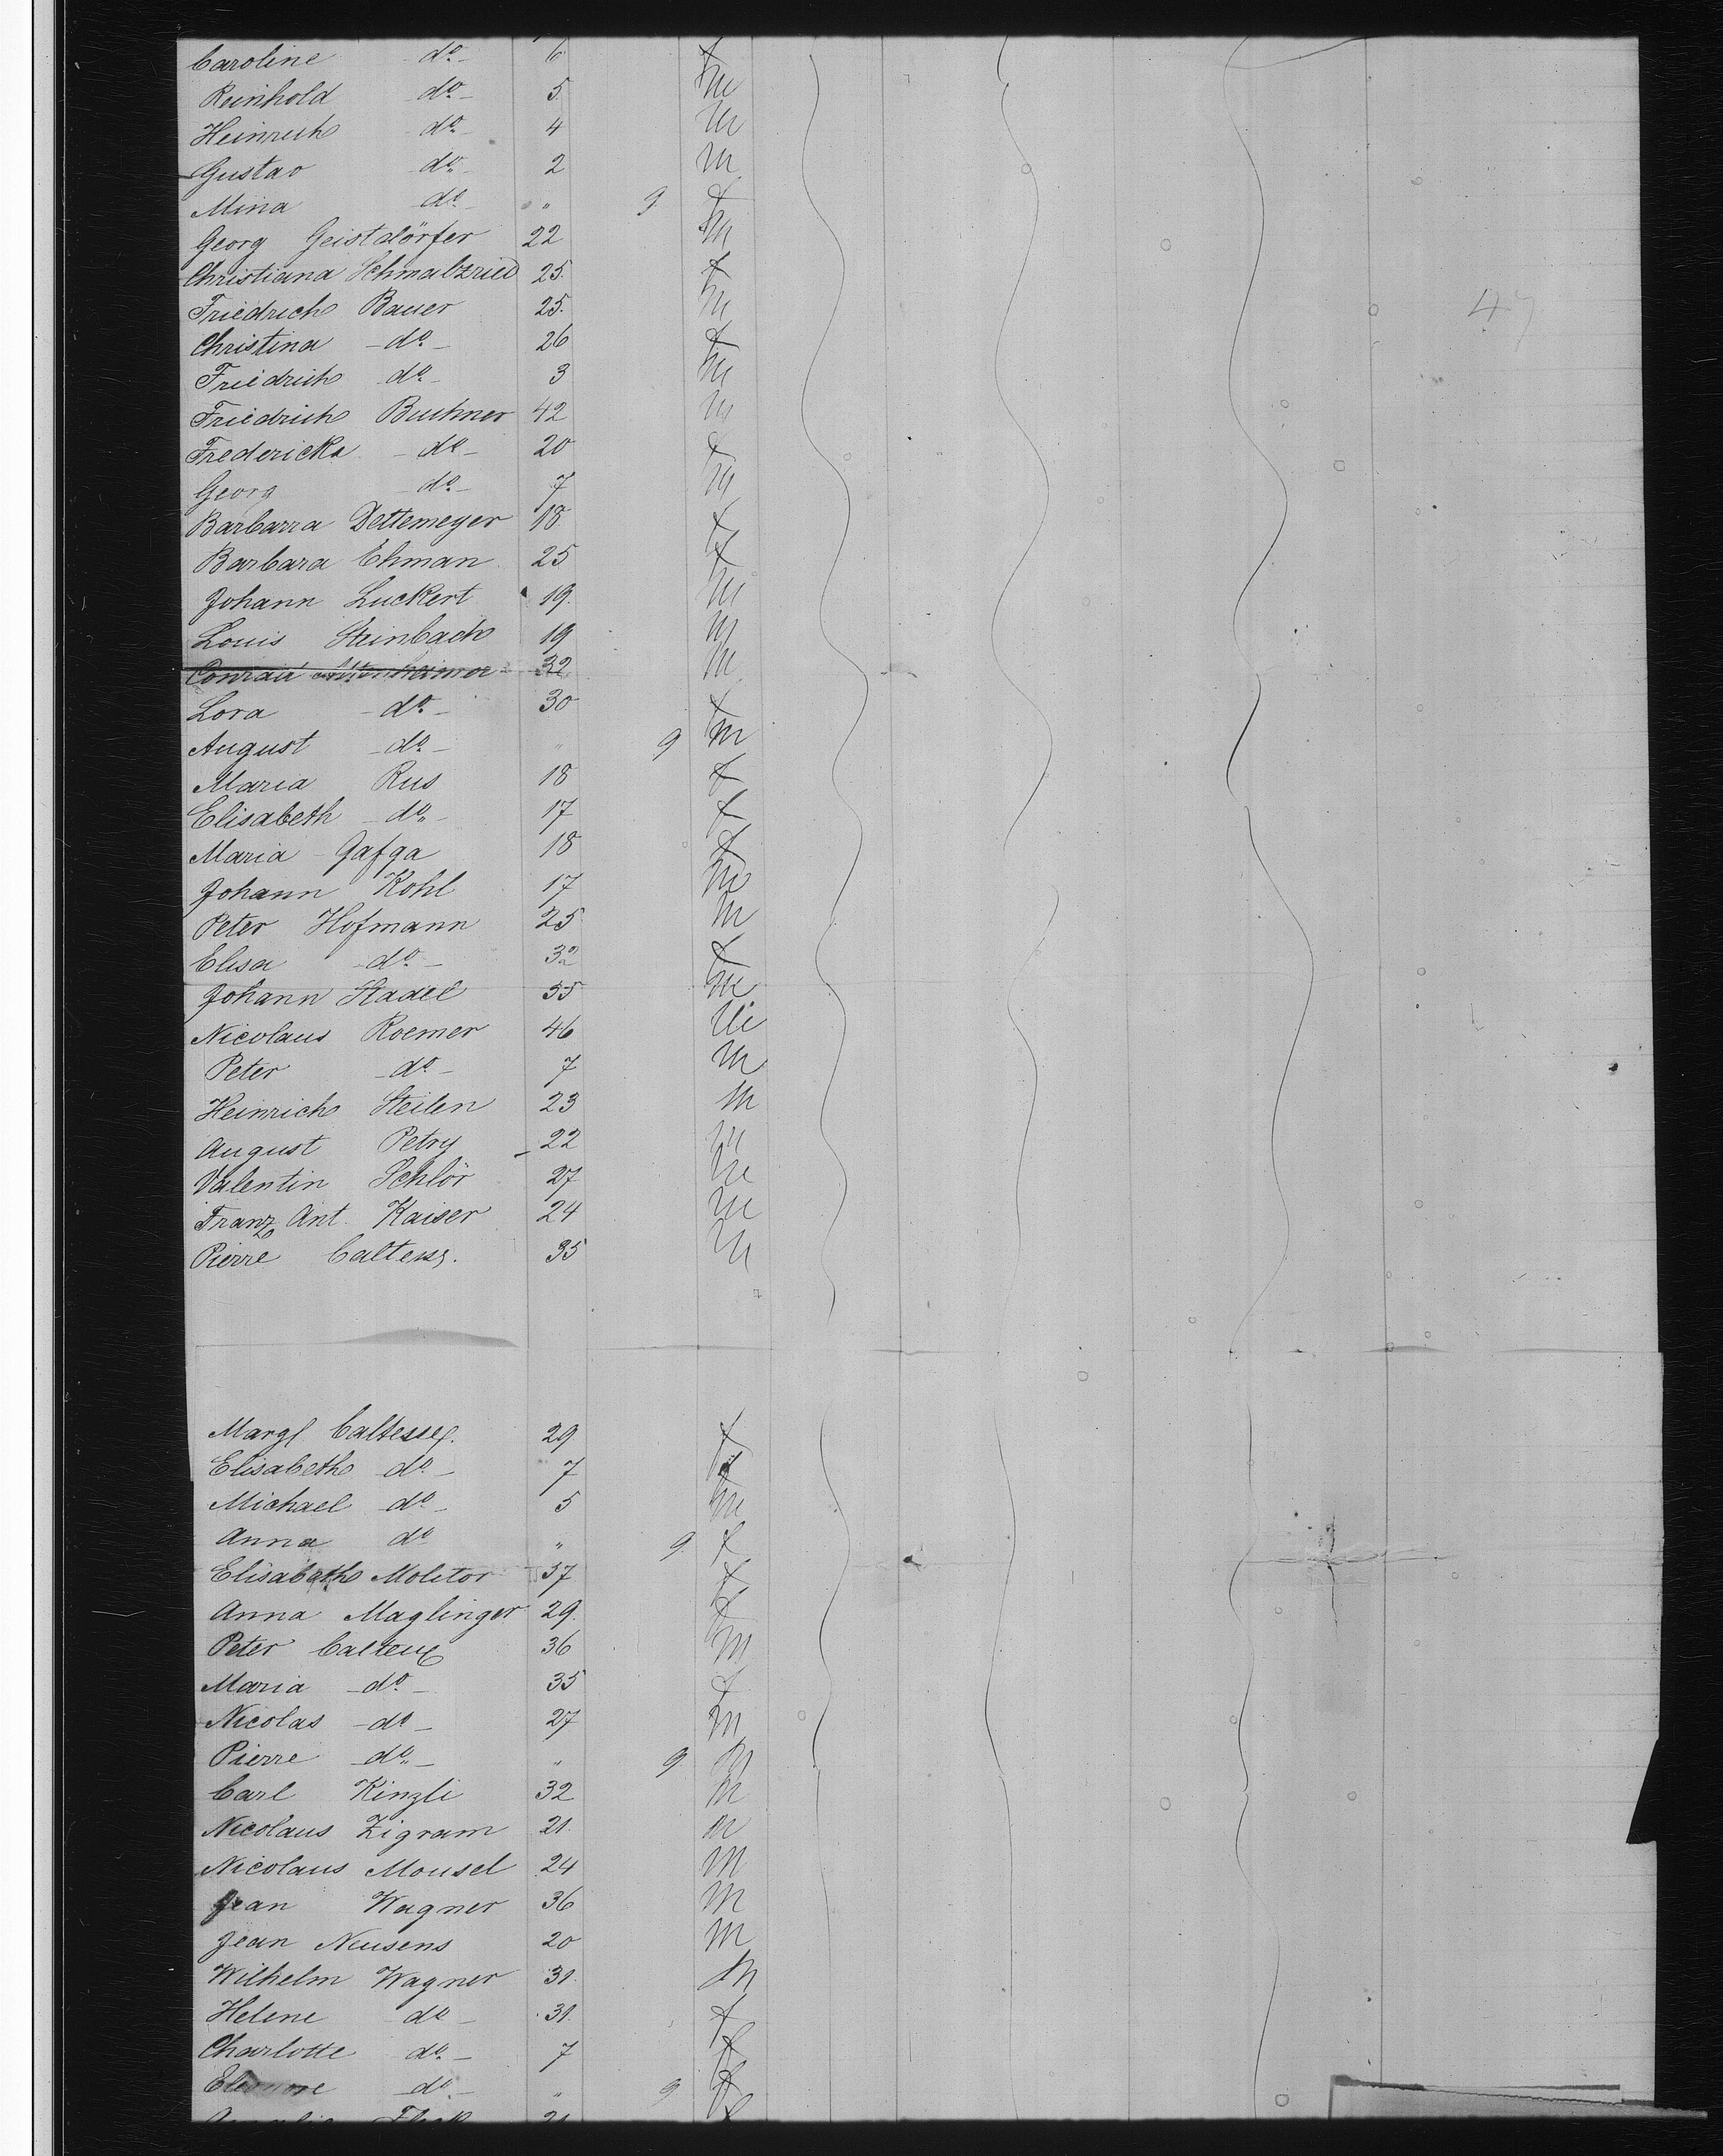 Caroline do 6 f
Reinhold do 5 m
Heinrich do 4 m
Gustav do 2 m
Mina do " 9 f
Georg Geistdörfer 22 m
Christiana Schmalzried 25 f
Friedrich Bauer 25 m
Christina do 26 f
Friedrich do 3 m
47
Friedrich Buchner 42 m
Fredericka do 20 f
Georg do 7 m
Barbarra Dettemeyer 18 f
Barbara Ehman 25 f
Johann Luckert 19 m
Louis Steinbach 19 m
Conrad 32 m
Lora do 30 f
August do " 9 m
Maria Rus 18 f
Elisabeth do 17 f
Maria Gafga 18 f
Johann Kohl 17 m
Peter Hofmann 25 m
Elisa do 32 f
Johann Stadel 55 m
Nicolaus Roemer 46 m
Peter do 7 m
Heinrich Steilen 23 m
August Petry 22 m
Valentin Schlör 27 m
Franz Ant. Kaiser 24 m
Pierre 35 m
Margt 29 f
Elisabeth do 7 f
Michael do 5 m
Anna do " 9 f
Elisabeth Molitor 37 f
Anna Maglinger 29 f
Peter Calteux 36 m
Maria do 35 f
Nicolas do 27 m
Pierre do " 9 m
Carl Kinzli 32 m
Nicolaus Zigram 21 m
Nicolaus Mousel 24 m
Jean Wagner 36 m
Jean Neusens 20 m
Wilhelm Wagner 31 m
Helene do 31 f
Charlotte do 7 f
Eleonore do " 9 f
21 f